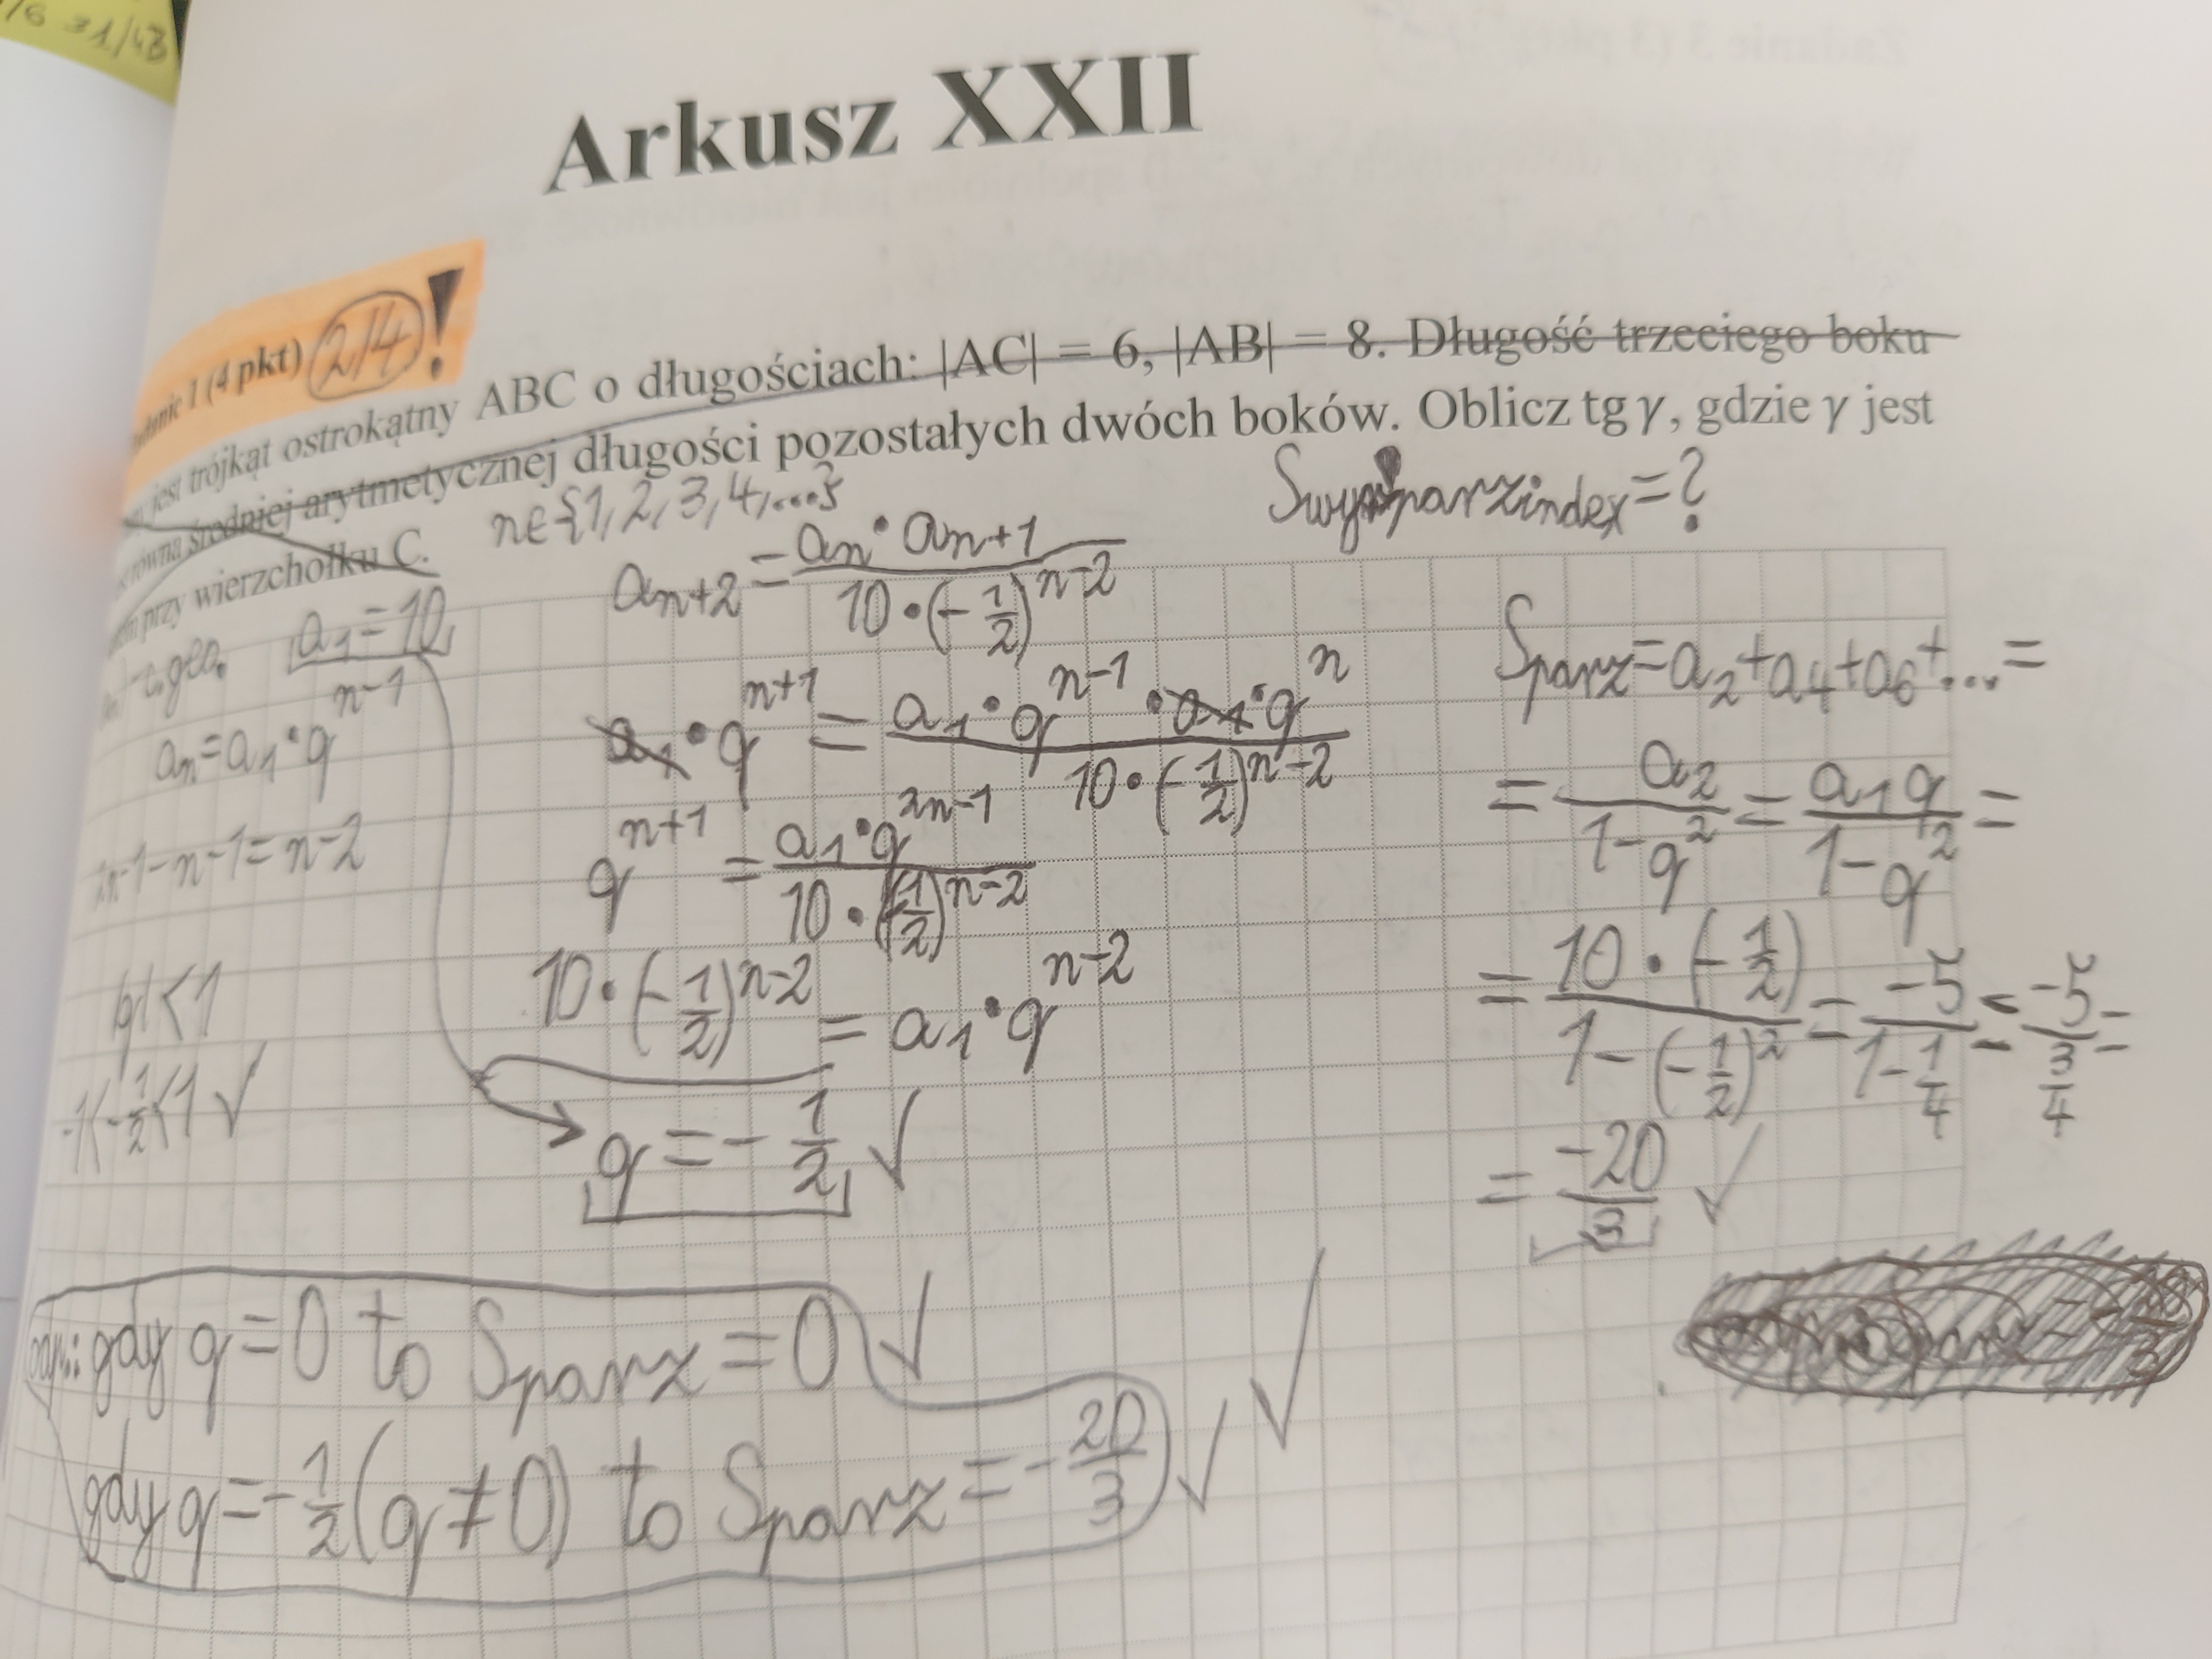 /6 31/48
Arkusz XXII
Zadanie 1 (4 pkt) 2/4 !
jest trójkąt ostrokątny ABC o długościach: |AC| = 6, |AB| = 8. Długość trzeciego boku
równa średniej arytmetycznej długości pozostałych dwóch boków. Oblicz tg γ, gdzie γ jest
przy wierzchołku C.
n∈{1,2,3,4,...}
Sparzindex=?
a₁=10
aₙ=a₁·qⁿ⁻¹
2n-1-n-1=n-2
|q|<1
-1<-1/2<1 ✓
aₙ₊₂=(aₙ·aₙ₊₁)/(10·(-1/2)ⁿ⁻²)
a₁·qⁿ⁺¹=(a₁·qⁿ⁻¹·a₁·qⁿ)/(10·(-1/2)ⁿ⁻²)
qⁿ⁺¹=(a₁·q²ⁿ⁻¹)/(10·(-1/2)ⁿ⁻²)
10·(-1/2)ⁿ⁻²=a₁·qⁿ⁻²
q=-1/2 ✓
Sparz=a₂+a₄+a₆+...=
=a₂/(1-q²)=a₁q/(1-q²)=
=(10·(-1/2))/(1-(-1/2)²)=-5/(1-1/4)=-5/(3/4)=
=-20/3 ✓
odp.: gdy q=0 to Sparz=0 ✓
gdy q=-1/2 (q≠0) to Sparz=-20/3 ✓ ✓